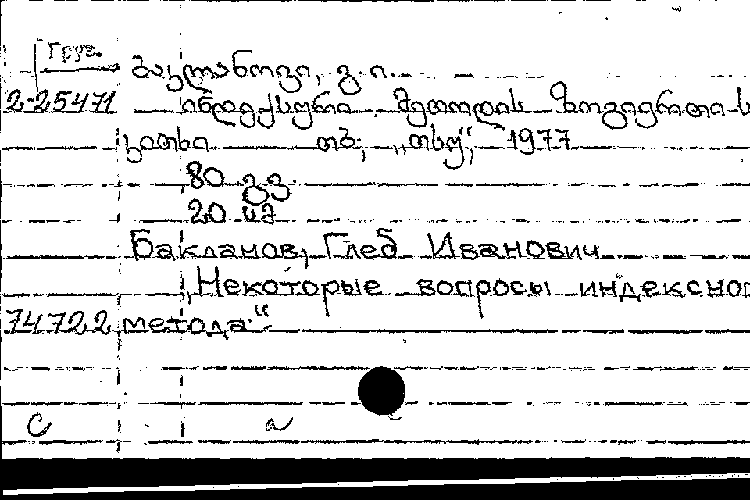 Груз.
ბაკლანოვი, გ. ი.
2-25471 ინდექსური მეთოდის ზოგიერთი ს
კითხი თბ., „თსუ“, 1977
80 გვ.
20 კაპ
Бакланов, Глеб Иванович
„Некоторые вопросы индексног
74722 метода."
C a